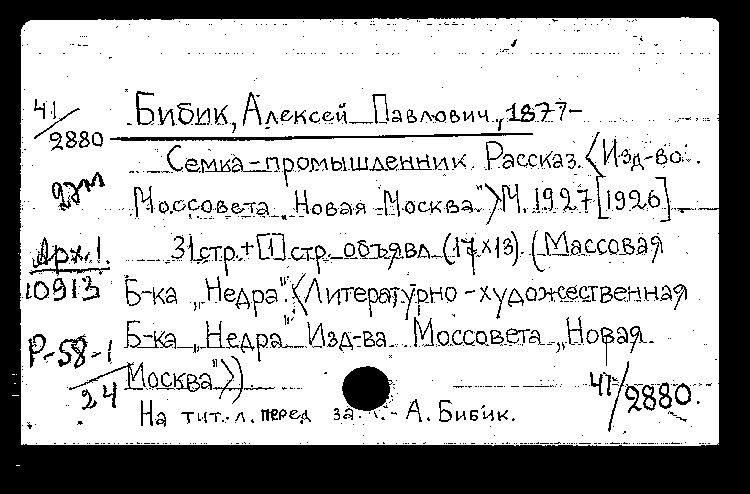 41/2880
Бибик, Алексей Павлович, 1877-
Семка-промышленник. Рассказ. <Изд-во
Моссовета „Новая Москва">М. 1927 [1926].
Арх.1.
10913
31 стр.+[1] стр. объявл. (17x13). (Массовая
Б-ка „Недра". <Литературно-художественная
Б-ка „Недра" Изд-ва Моссовета „Новая
Москва">)
Р-58-1/24
41/2880.
На тит. л. перед А. Бибик.